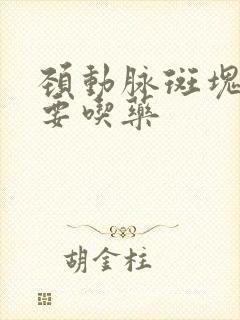 頸動脉斑塊
要喫藥
胡金柱